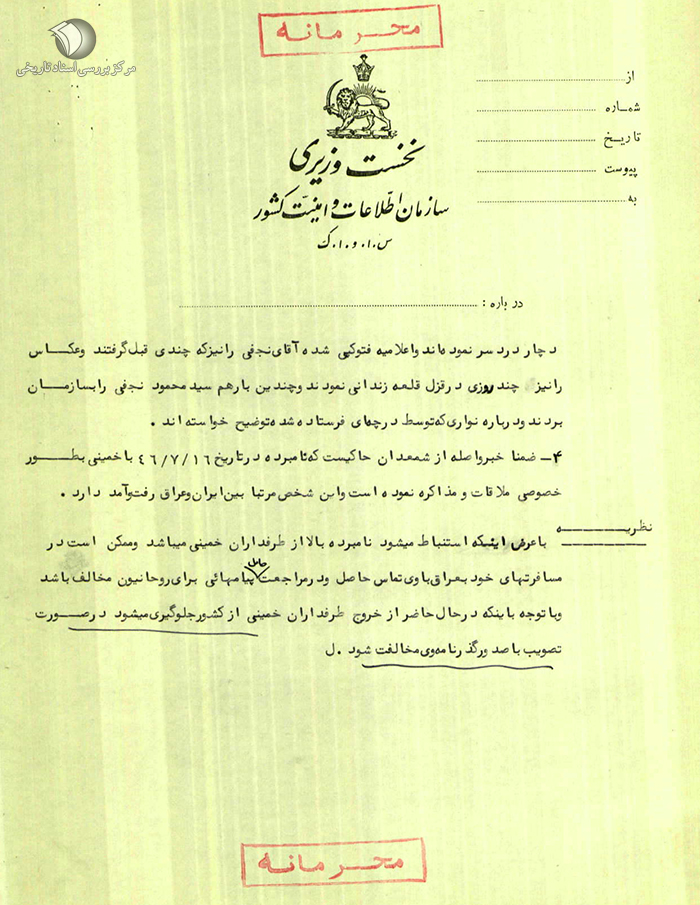 محرمانه
مرکز بررسی اسناد تاریخی
نخست وزیری
سازمان اطلاعات و امنیت کشور
س.ا.و.ا.ک
از
شماره
تاریخ
پیوست
به
درباره :
دچار دردسر نموده‌اند و اعلامیه فتوکپی شده آقای نجفی را نیز که چندی قبل گرفتند و عکاس
را نیز چند روزی در قزل قلعه زندانی نمودند و چندین بار هم سید محمود نجفی را بسازمان
بردند و درباره نواری که توسط درچه‌ای فرستاده شده توضیح خواسته‌اند .
۴- ضمنا خبر واصله از شمعدان حاکیست که نامبرده در تاریخ ۴۶/۷/۱۶ با خمینی بطور
خصوصی ملاقات و مذاکره نموده است و این شخص مرتبا بین ایران و عراق رفت و آمد دارد .
نظریه
با عرض اینکه استنباط میشود نامبرده بالا از طرفداران خمینی میباشد و ممکن است در
مسافرتهای خود بعراق با وی تماس حاصل و در مراجعت حامل پیامهائی برای روحانیون مخالف باشد
و با توجه باینکه در حال حاضر از خروج طرفداران خمینی از کشور جلوگیری میشود در صورت
تصویب با صدور گذرنامه وی مخالفت شود . ل
محرمانه